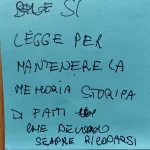 SI
LEGGE PER
MANTENERE LA
MEMORIA STORICA
DI FATTI
CHE DEVONO
SEMPRE RICORDARSI